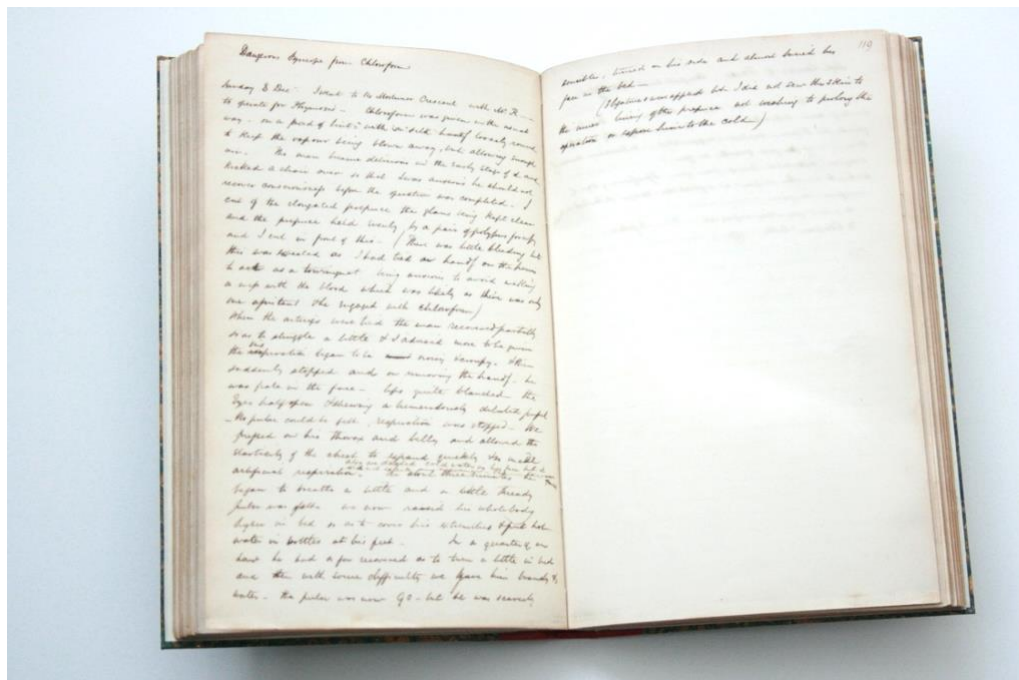 Dangerous Syncope from Chloroform
Sunday 3 Dec I went to Mortimer Crescent with Mr. K
to operate for Phymosis – Chloroform was given in the usual
way – on a piece of lint with silk handf loosely round
to keep the vapour being blown away, but allowing enough
air. The man became delirious in the early stage of it and
kicked a chair over so that I was anxious he should not
recover consciousness before the operation was completed. I
cut off the elongated prepuce the glans being kept clear
and the prepuce held by a pair of polypus forceps
and I cut in front of this – (There was little bleeding but
this was expected as I had tied a handf on the penis
to act as a tourniquet being anxious to avoid making
a mess with the blood which was likely as there was only
one assistant & he engaged with chloroform)
When the arteries were tied the man recovered partially
so as to struggle a little & I advised more to be given
the respiration began to be noisy & croupy & then
suddenly stopped and on removing the handf – he
was pale in the face – lips quite blanched – the
Eyes half open & shewing a tremendously dilated pupil
– No pulse could be felt respiration was stopped – We
pressed on his thorax and belly and allowed the
elasticity of the chest to expand quickly & so made
also we dashed cold water on his face
artificial respiration. In about three minutes he
began to breathe a little and a little thready
pulse was felt. We now raised his whole body
higher in bed so as to cover his extremities & put hot
water in bottles at his feet – In a quarter of an
hour he had so far recovered as to turn a little in bed
and then with some difficulty we gave him brandy &
water – the pulse was now 90 – but he was scarcely
119
sensible, turned on his side and almost buried his
face in the bed –
(Ligatures were applied but I did not sew the skin to
the inner lining of the prepuce not wishing to prolong the
operation or expose him to the cold)